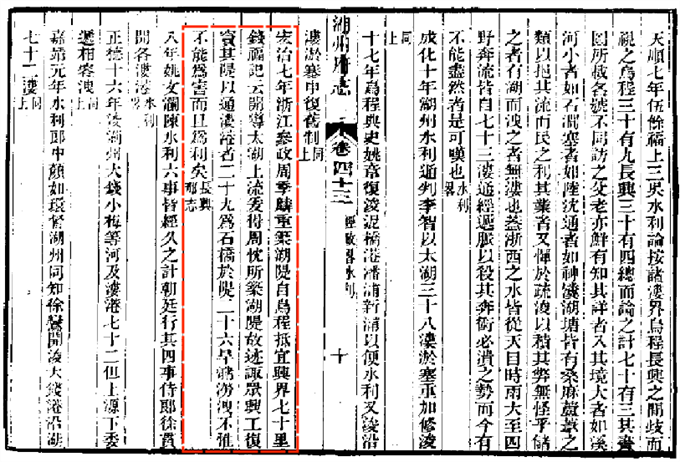 天順七年伍餘福上三吳水利論按諸漊界烏程長興之間歧而
視之烏程三十有九長興三十有四總而論之計七十有三其
圖所載名號不同訪之父老亦鮮有知其詳者又其境大者如溪
河小者如石澗塞者如陸沈通者如神漊湖塘皆有桑麻蘆葦之
類以扼其流而民之利其業者又憚於疏浚以積其弊無怪乎儲
之者有湖而洩之者無漊也蓋浙西之水皆從天目時雨大至四
野奔流皆自七十三漊通經遞脈以殺其奔衝必潰之勢而今有
不能盡然者是可嘆也 水利畧
成化十年湖州水利通判李智以太湖三十八漊淤塞重加修浚
同上
十七年烏程典史姚章復浚泥橋港潘浦新浦以便水利又浚沿
湖州府志 卷四十三 經政畧水利 十
漊淤塞申復舊制 同上
宏治七年浙江參政周季麟重築湖隄自烏程抵宜興界七十里
錢福記云開導太湖上流爰得周忱所築湖隄故迹諏眾興工復
竇其隄以通漊港者二十九為石橋於隄二十六旱瀦澇洩不雅
不能為害而且為利矣 長興縣志
八年姚文灝陳水利六事皆經久之計朝廷行其四事侍郎徐貫
開各漊港 水利畧
正德十六年浚湖州大錢小梅等河及漊港七十二但上源下委
遞相容洩 同上
嘉靖元年水利郎中顏如環督湖州同知徐鸞開浚大錢港沿湖
七十二漊 同上